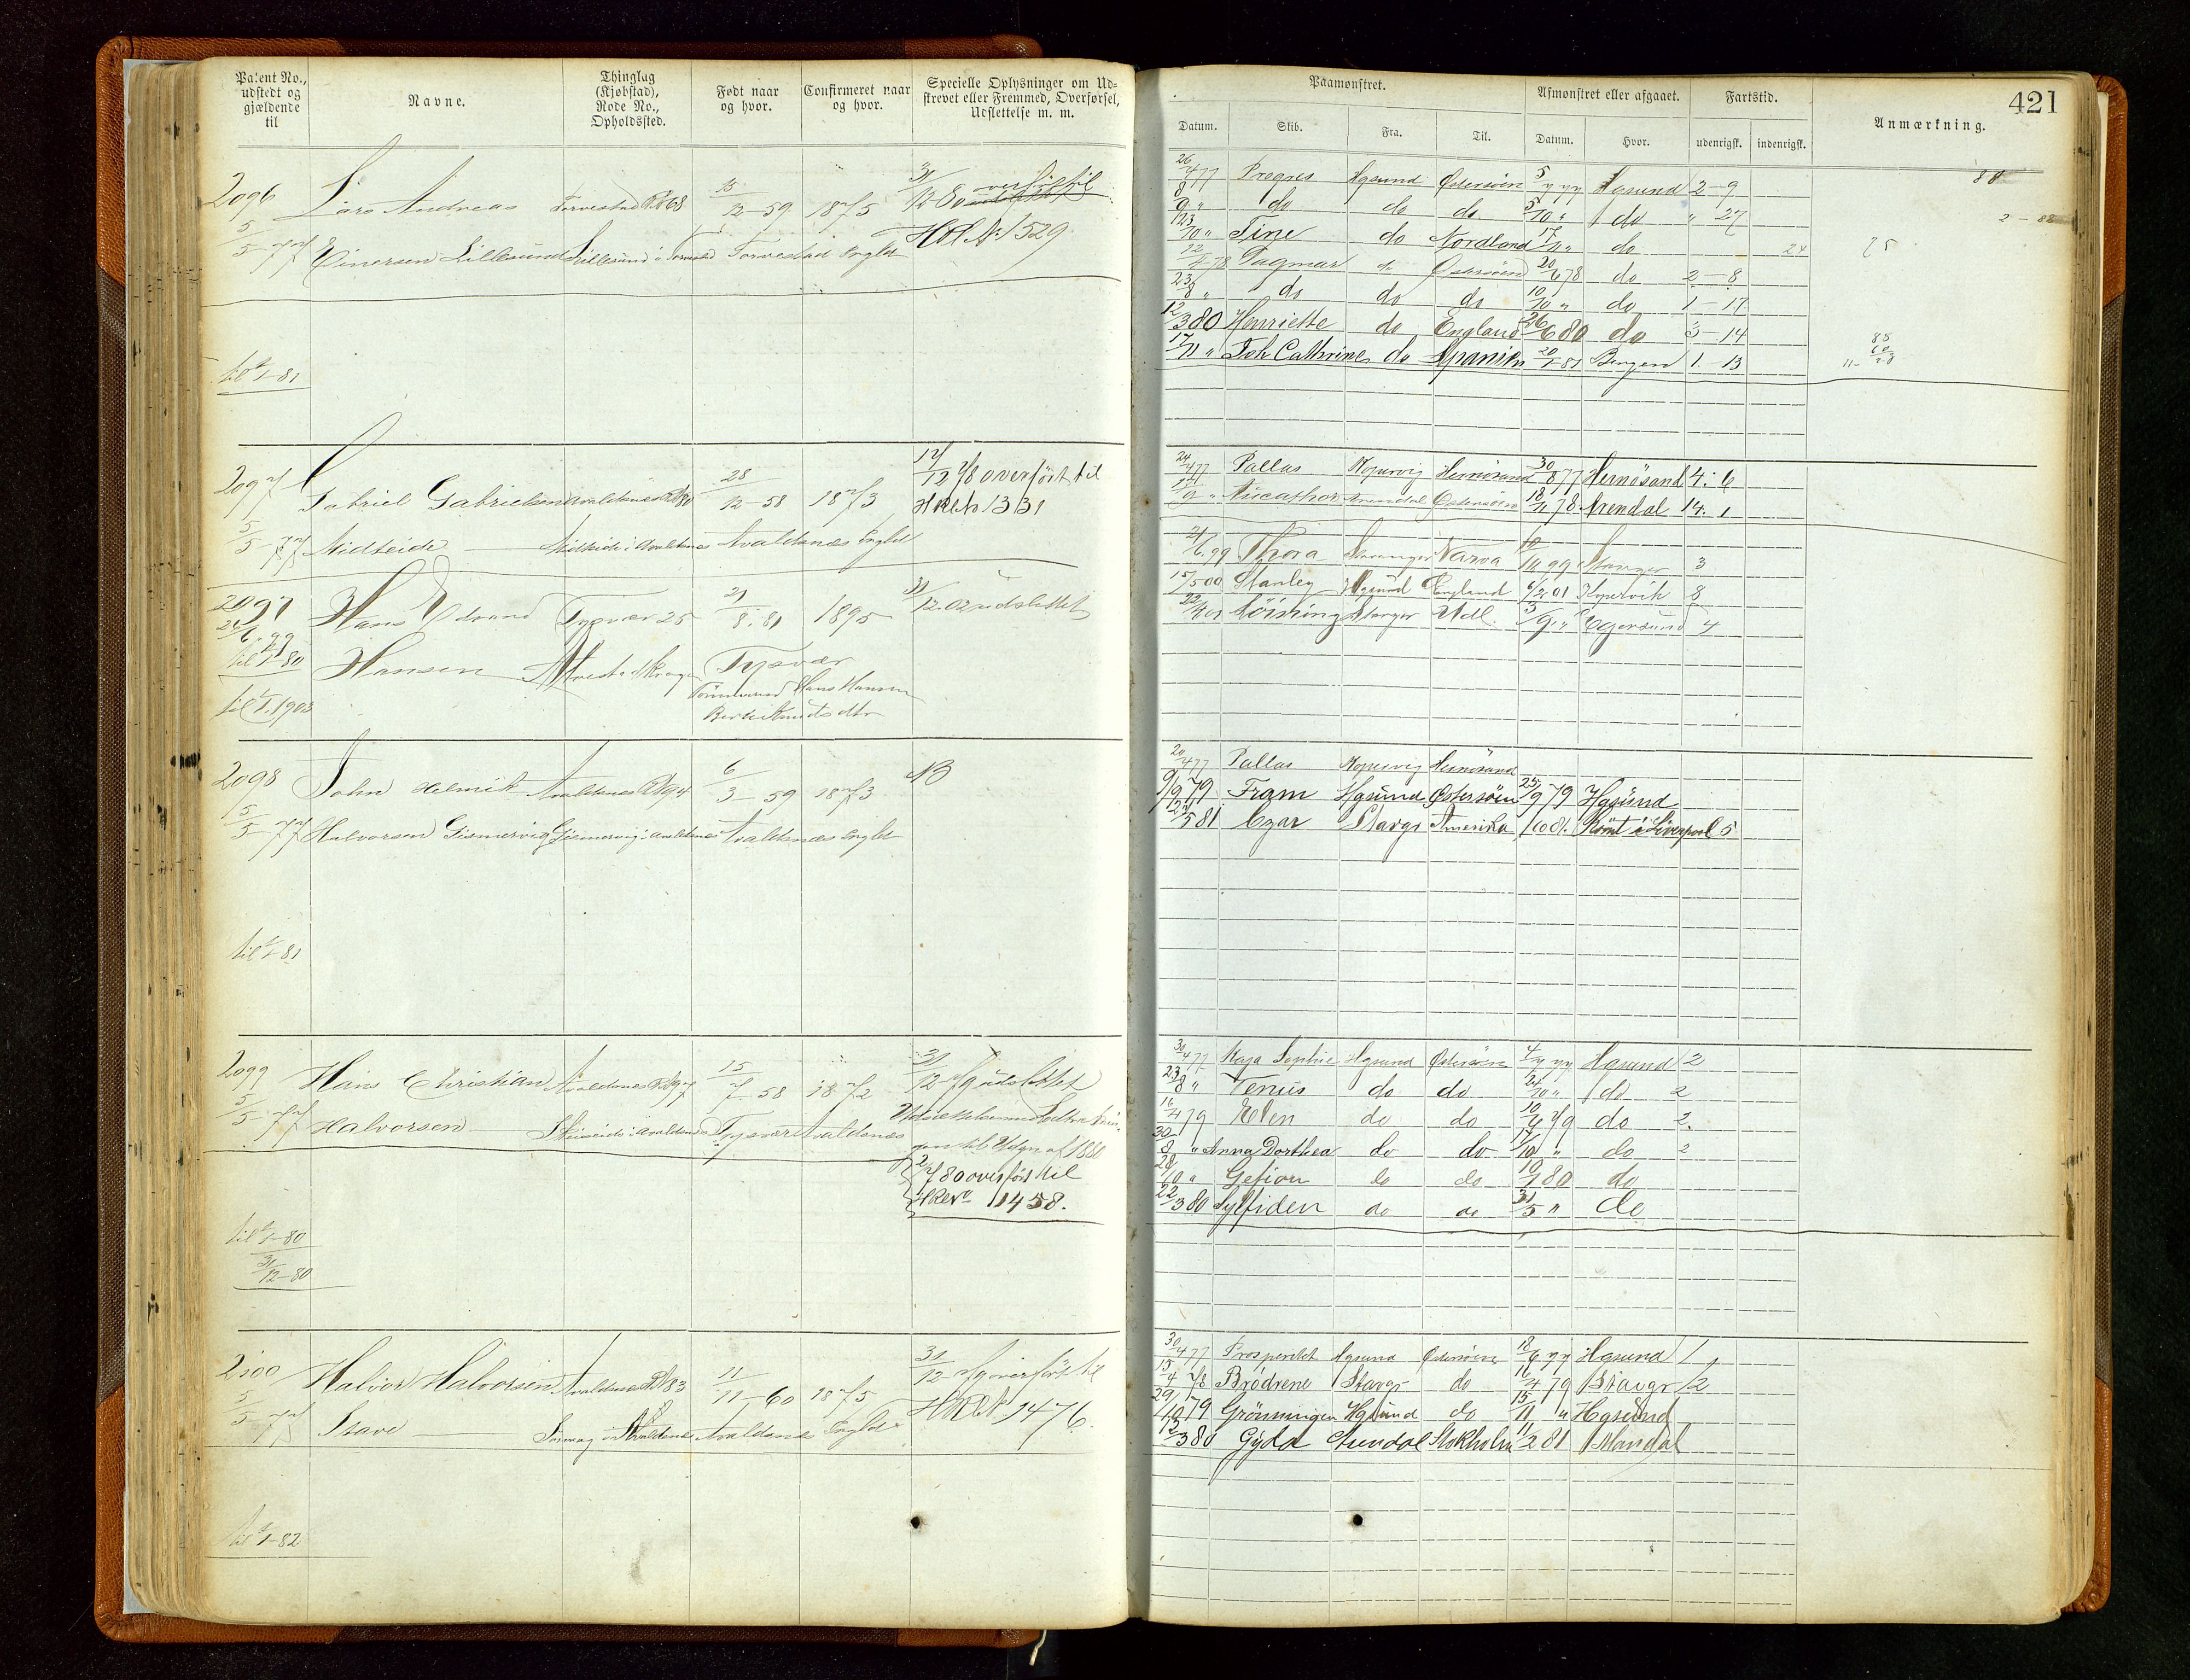 Patent No., udstedt og gjældende til
Navne.
Thinglag (Kjøbstad), Rode No., Opholdssted.
Født naar og hvor.
Confirmeret naar og hvor.
Specielle Oplysninger om Udskrevet eller Fremmed, Overførsel, Udslettelse m. m.
Paamønstret.
Afmønstret eller afgaaet.
Fartstid.
Anmærkning.
421
Datum. Skib. Fra. Til. Datum. Hvor. udenrigsk. indenrigsk.
2096 Lars Andreas Torvestad R 68 15/12-59 1875 31/12-80
5/5-77 Einersen Lillesund Lillesund i Torvestad Torvestad HRL No 1529
til 1/1-81
26/4 77 Progres Hgsund Østersøen 5/7 77 Hgsund 2-9
8/9 " do do do 5/10 " do " 27
23/10 " Tine do Nordland 17/11 " do 24
22/4-78 Dagmar do Østersøen 20/6 78 do 2-8
23/8 " do do do 10/10 " do 1-17
12/3 80 Henriette do England 26/6 80 do 3-14
17/11 " Joh Cathrine do Spanien 20/1-81 Bergen 1-13
2097 Gabriel Gabrielsen Avaldsnes 28/12-58 1873 17/12 78 overført til
HRL No 1331
5/5-77 Midteide Midteide i Avaldsnes Avaldsnes
24/4 77 Pallas Kopervig Hernösand 30/8 77 Hernösand 4-6
Arendal Østersøen 18/11 78 Arendal 14. 1
2097 Hans Edvard Tysvær 25 21/8. 81 1895 31/12. 02 udslettet
26/6. 99
til 1/1 80 Hansen Tysvær
Hans Hansen
til 1/1. 1903
21/6. 99 Thora Stavanger Narva 99 Stavanger 3
15/5 00 Stanley Hgsund England 6/2 01 Kopervik 8
Stavger Udl. Egersund 4
2098 John Helmik Avaldsnes R 94 6/3-59 1873 NB
5/5-77 Halvorsen Gismervig Gismervig i Avaldsnes Avaldsnes
til 1/1-81
20/4 77 Pallas Kopervig Hernösand
9/9 79 Fram Hgsund Østersøen 25/9 79 Hgsund
2/5 81 Czar Stavgr Amerika /10 81. Rømt i Liverpool 5
2099 Hans Christian Avaldsnes R 97 15/7-58 1872 31/12-79 udslettet
5/5-77 Halvorsen i Avaldsnes Tysvær Avaldsnes
2/7 80 overført til
HRL No 1458.
til 1/1-80
31/12-80
30/4 77 Kaja Sophie Hgsund Østersøen 4/7 77 Hgsund 2
23/8 " Venus do do 24/10 " do 2
16/4 79 Elen do do 10/7 79 do 2.
30/8 " Anna Dorthea do do 17/10 " do 2
28/10 " Gefion do do 10/1 80 do
22/3 80 Sylfiden do do 31/5 " do
2100 Halvor Halvorsen Avaldsnes R 83 11/11-60 1875 31/12-79 overført til
5/5-77 Stave Avaldsnes Avaldsnes HRL No 1476.
til 1/1-82
30/4 77 Prosperitet Hgsund Østersøen 18/6 77 Hgsund 1
15/4 78 Brødrene Stavgr do 16/4 79 Stavgr 12
29/10 79 Grönningen Hgsund do 15/11 " Hgsund
12/3 80 Gyda Arendal Stokholm 11/2 81 Mandal